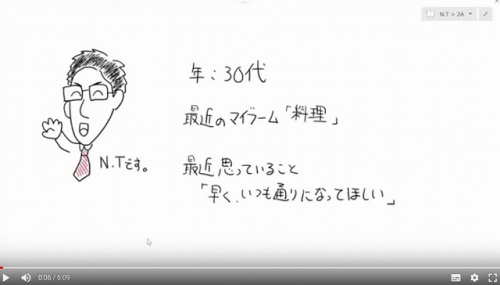 N.T > 2A
年：30代
最近のマイブーム「料理」
N.Tです。
最近思っていること
「早く、いつも通りになってほしい」
0:06 / 6:09